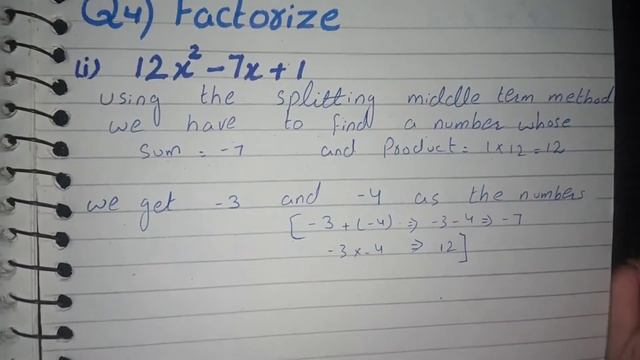 Q4) Factorize
(i) 12x² - 7x + 1
using the splitting middle term method
we have to find a number whose
sum = -7 and Product = 1 x 12 = 12
we get -3 and -4 as the numbers
[-3 + (-4) ⇒ -3 -4 ⇒ -7
-3 x -4 ⇒ 12]